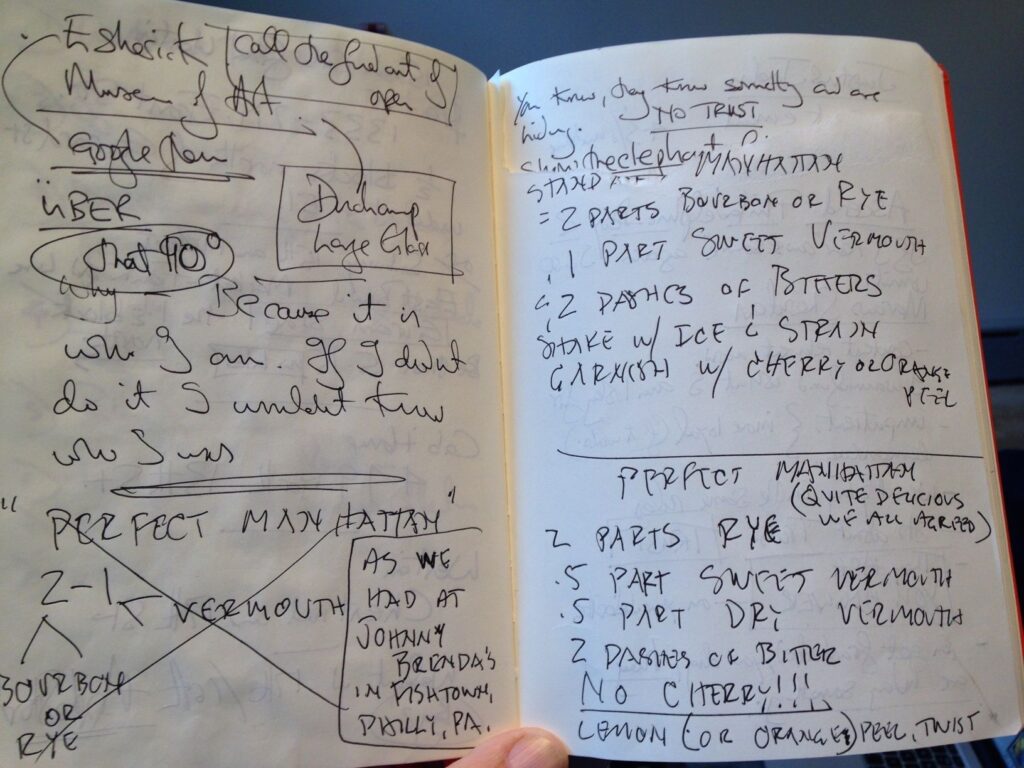 Esherick
call & find out if
open
Museum of AA
Google
ÜBER
Duchamp
Large Glass
that 40°
Why — Because it is
who I am. If I didnt
do it I wouldnt know
who I was
"PERFECT MANHATTAN"
2-1
VERMOUTH
BOURBON
OR
RYE
AS WE
HAD AT
JOHNNY
BRENDA'S
IN FISHTOWN,
PHILLY, PA.
You know, they know something and are
hiding.
NO TRUST
elephant
MANHATTAN
= 2 PARTS BOURBON OR RYE
1 PART SWEET VERMOUTH
2 DASHES OF BITTERS
SHAKE W/ ICE & STRAIN
GARNISH W/ CHERRY OR ORANGE
PEEL
PERFECT MANHATTAN
(QUITE DELICIOUS
WE ALL AGREED)
2 PARTS RYE
.5 PART SWEET VERMOUTH
.5 PART DRY VERMOUTH
2 DASHES OF BITTER
NO CHERRY!!!
LEMON (OR ORANGE) PEEL, TWIST